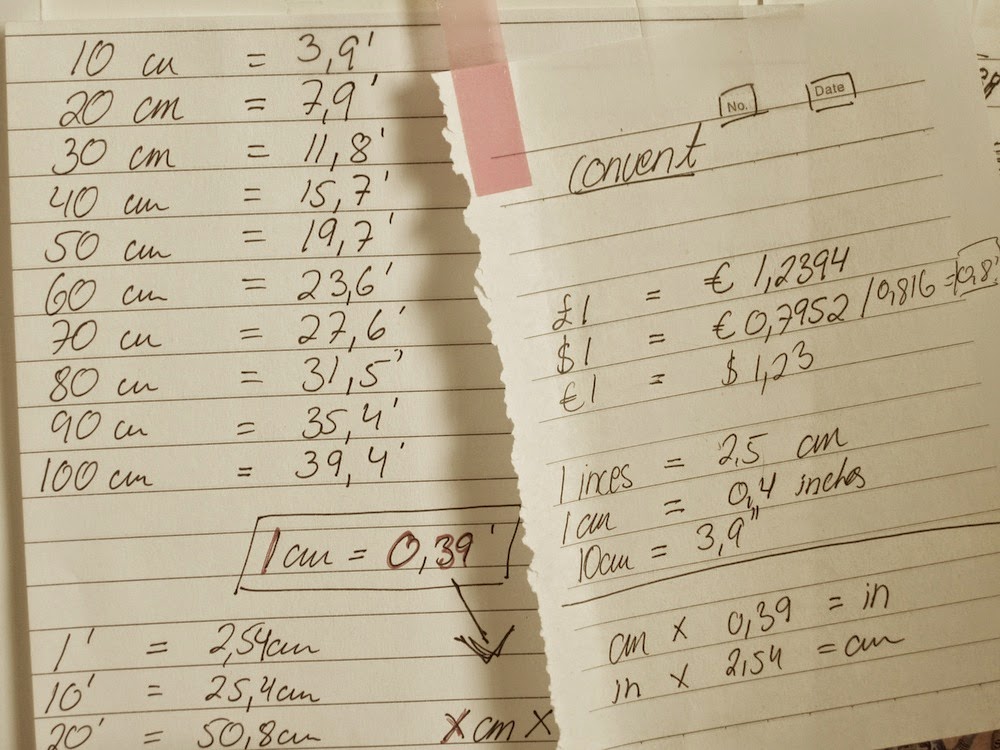 10 cm = 3,9'
20 cm = 7,9'
30 cm = 11,8'
40 cm = 15,7'
50 cm = 19,7'
60 cm = 23,6'
70 cm = 27,6'
80 cm = 31,5'
90 cm = 35,4'
100 cm = 39,4'
1 cm = 0,39'
1' = 2,54cm
10' = 25,4cm
20' = 50,8cm
X cm X
No. Date
convent
£1 = € 1,2394
$1 = € 0,7952 / 0,816 = 0,8
€1 = $ 1,23
1 inces = 2,5 cm
1 cm = 0,4 inches
10cm = 3,9"
cm x 0,39 = in
in x 2,54 = cm